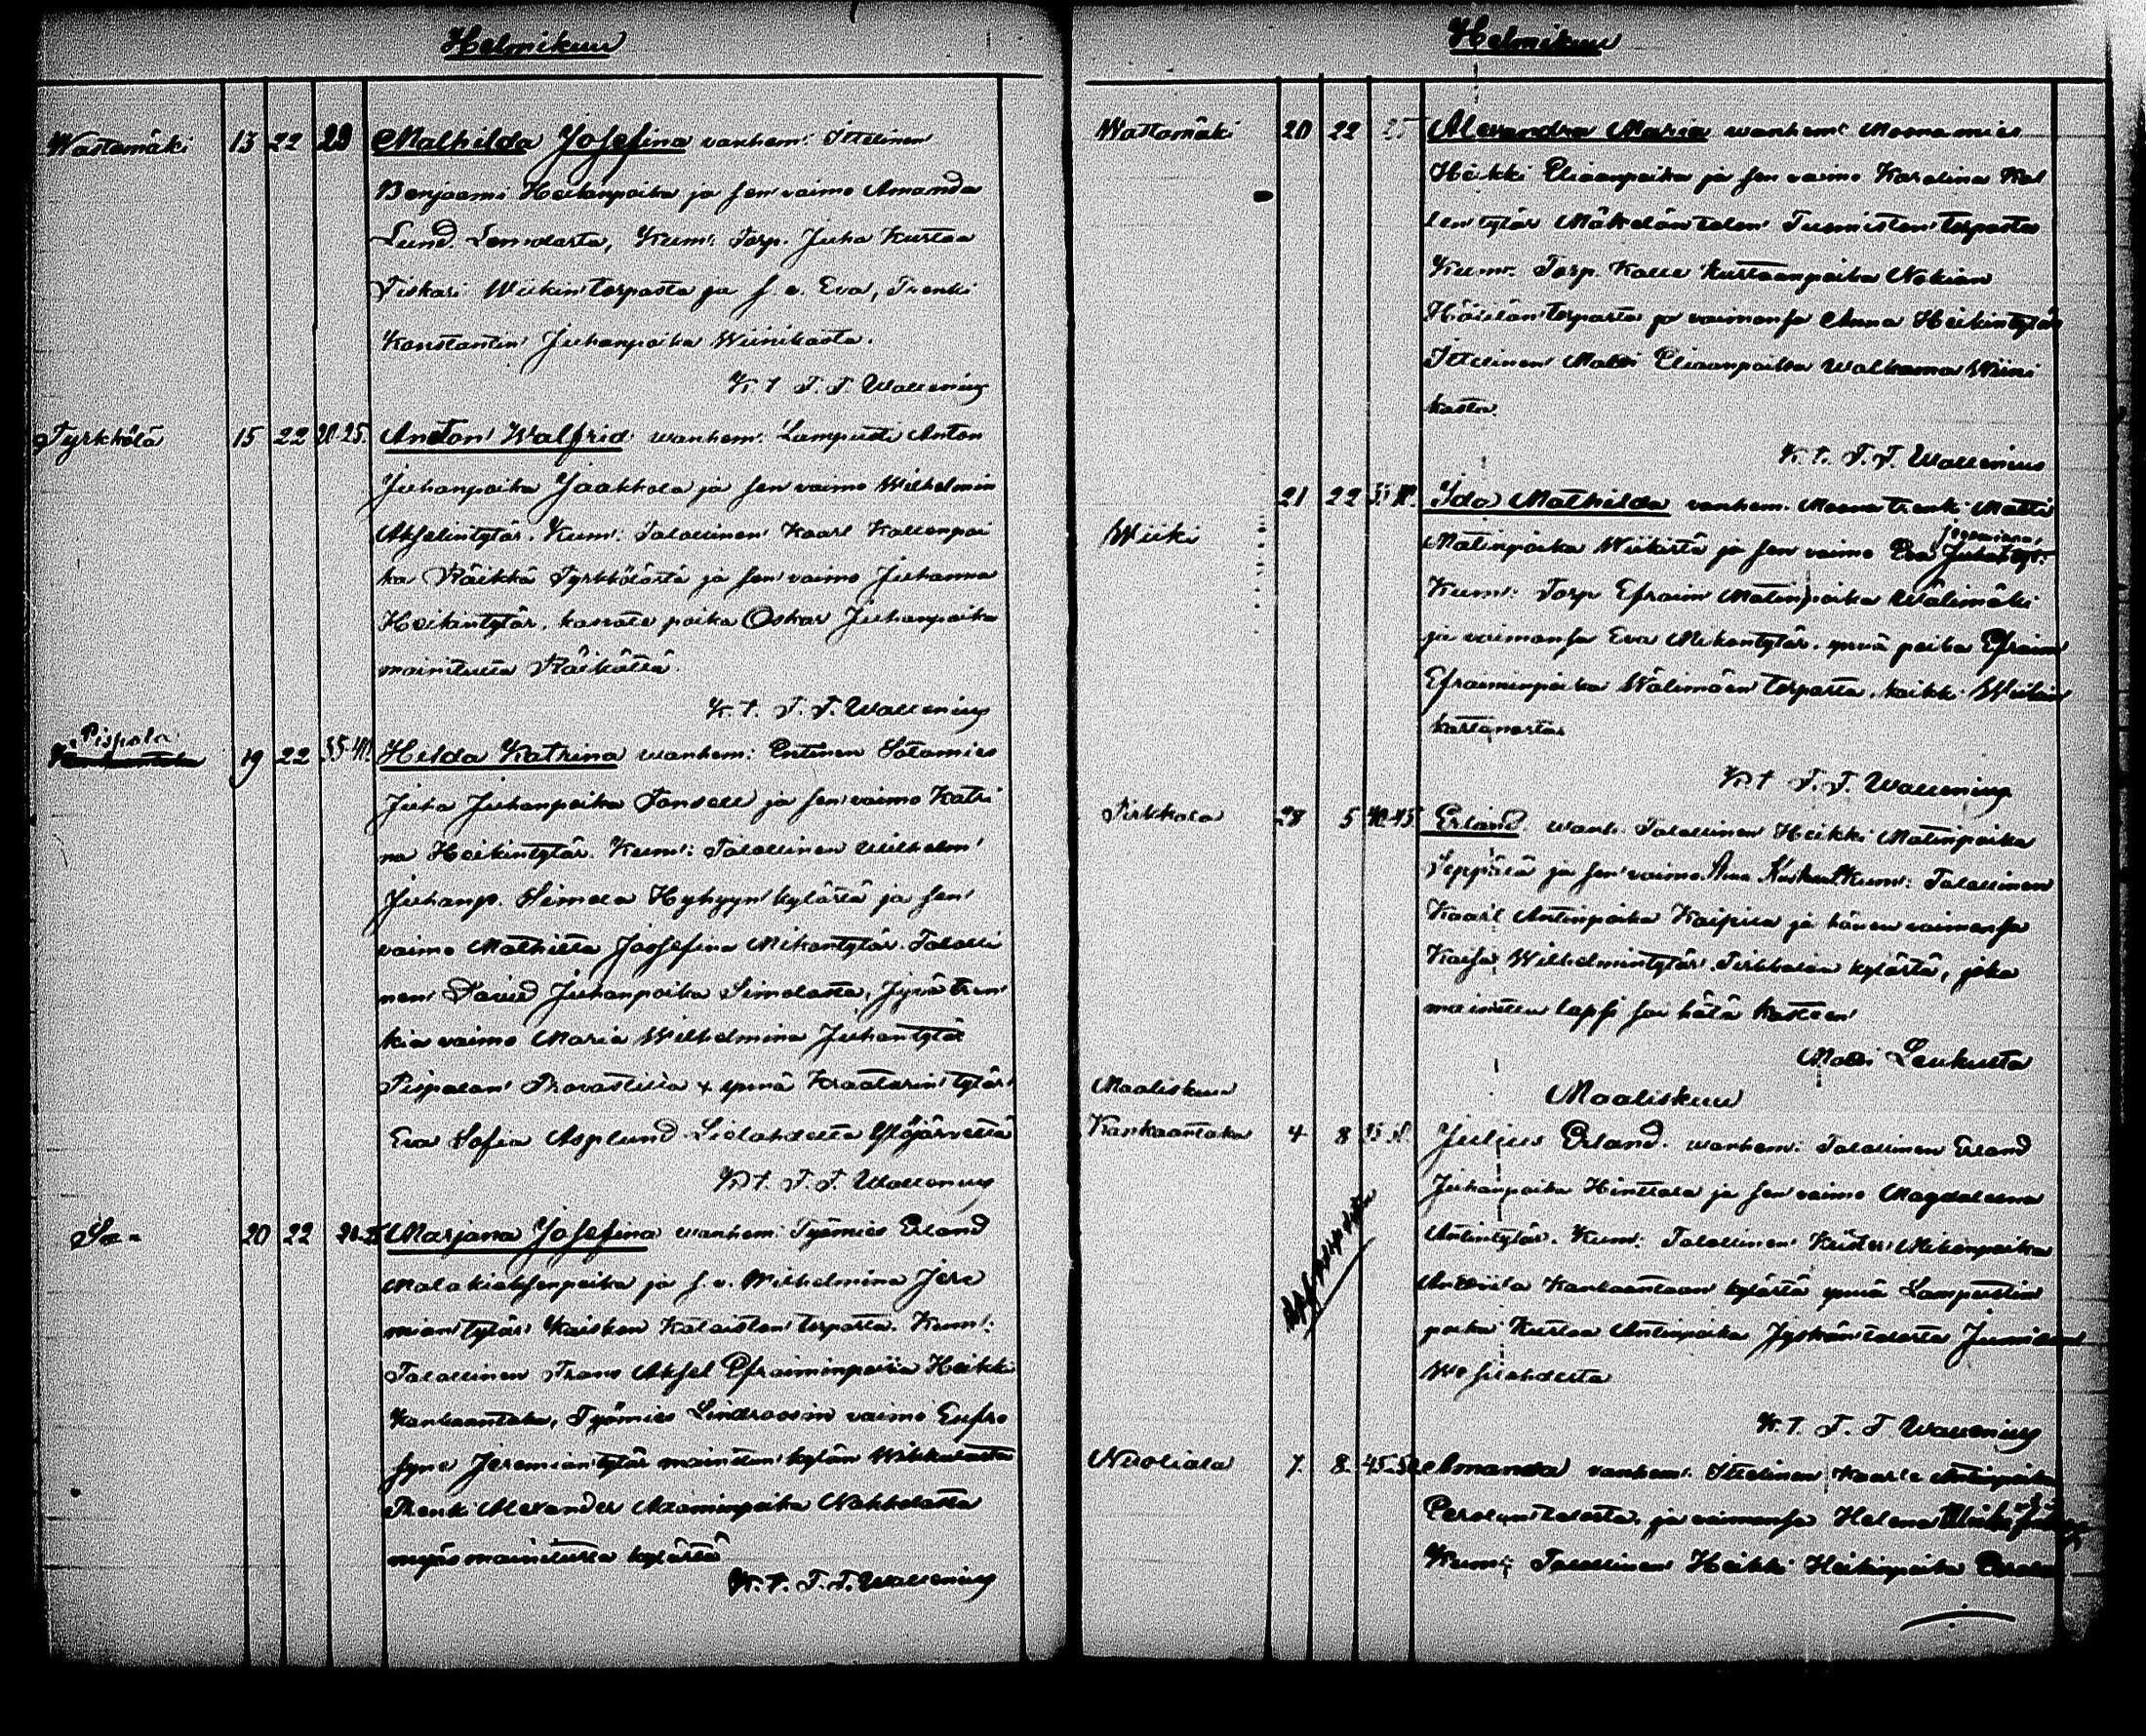 Helmikuu
Wastamäki 13 22 29 Mathilda Josefina vanhem: Ittelinen
Benjaami Heikinpoika ja sen vaimo Amanda
Lund. Kum: Torp. Juha Kustaa
Tiskari Wiikin torpasta ja s. v. Eva, Trenki
Konstantin Juhanpoika Wiinikasta.
K. t. T. T. Wallenius
Tyrkkölä 15 22 20-25. Anton Walfrid wanhem: Lampuoti Anton
Juhanpoika Jaakkola ja sen vaimo Wilhelmin
Akselintytär. Kum: Talollinen Kaarl Kallenpoi
ka Räikkä Tyrkkölästä ja sen vaimo Juhanna
Heikintytär, kasvate poika Oskar Juhanpoika
mainitusta Räikältä.
K. t. T. T. Wallenius
Pispala
19 22 35-40. Hilda Katrina wanhem: Entinen Sotamies
Juha Juhanpoika Tansell ja sen vaimo Katri
na Heikintytär. Kum: Talollinen Wilhelm
Juhanp. Simola Hyhyyn kylästä ja sen
vaimo Mathilta Jossefina Mikontytär. Talolli
nen David Juhanpoika Simolasta, Jyvä tren
kin vaimo Maria Wilhelmina Juhantytär
Pispalan Provastilla & ynnä Kraatarin tytär
Eva Sofia Asplund Lielahdelta Ylöjärveltä
K. t. T. T. Wallenius
20 22 Marjana Josefina wanhem: Työmies Erland
Malakiaksenpoika ja s. v. Wilhelmina Jere
mian tytär Kaiskon Kalaiston torpasta. Kum:
Talollinen Frans Aksel Efraiminpoika Heikki
Kankaantaka, Työmies Lindroosin vaimo Eufro
syne Jeremiantytär mainitun kylän Wihkulasta
Trenki Alexander Adaminpoika Nahkolasta
myös mainitusta kylästä
K. t. T. T. Wallenius
Helmikuu
Wattamäki 20 22 25 Alexandra Maria wanhem: Moonamies
Heikki Eliaanpoika ja sen vaimo Karolina Kal
len tytär Mäkelän talon Tuomiston torpasta
Kum: Torp. Kalle Kustaanpoika Nokian
Häiilän torpasta ja vaimonsa Anna Heikintytär
Ittelinen Matti Eliaanpoika Walkama Wiini
kasta.
K. t. T. T. Wallenius
Wiiki 21 22 35-40. Ida Mathilda vanhem. Moona trenki Matti
Matinpoika Wiikistä ja sen vaimo Eva
Kum: Torp Efraim Matinpoika Wälimäki
ja vaimonsa Eva Mikontytär, ynnä poika Efraim
Efraiminpoika Wälimäen torpasta, kaikki Wiikin
kartanosta
K. t. T. T. Wallenius
Pirkkala 28 5 40-45. Erland. wanh. Talollinen Heikki Matinpoika
Seppälä ja sen vaimo Kum: Talollinen
Kaarl Antinpoika Kaipila ja hänen vaimonsa
Kaisa Wilhelmintytär Pirkkalan kylästä, joka
mainittu lapsi sai hätä kasteen
Matti Leukusta
Maaliskuu
Maaliskuu
Kankaantaka 4 8 Julius Erland. wanhem: Talollinen Erland
Juhanpoika Hinttala ja sen vaimo Magdaleena
Antintytär. Kum: Talollinen Kuster Mikonpoika
Anttila Kankaantaan kylästä ynnä Lampuotin
poika Kustaa Antinpoika Jyskän talosta
Wesilahdelta
K. t. T. T Wallenius
Nuoliala 7. 8 45-50. Amanda vanhem. Ittelinen Kaarle Antinpoika
Perolan talosta, ja vaimonsa Helena
Kum: Talollinen Heikki Heikinpoika